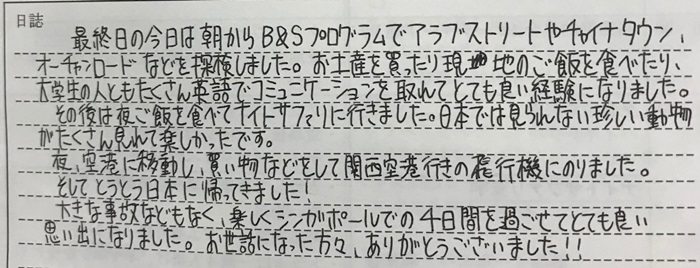 日誌
最終日の今日は朝からB&Sプログラムでアラブストリートやチャイナタウン、
オーチャンロードなどを探検しました。お土産を買ったり現地のご飯を食べたり、
大学生の人ともたくさん英語でコミュニケーションを取れてとても良い経験になりました。
その後は夜ご飯を食べてナイトサファリに行きました。日本では見られない珍しい動物
がたくさん見れて楽しかったです。
夜、空港に移動し、買い物などをして関西空港行きの飛行機にのりました。
そしてとうとう日本に帰ってきました!
大きな事故などもなく、楽しくシンガポールでの4日間を過ごせてとても良い
思い出になりました。お世話になった方々、ありがとうございました!!